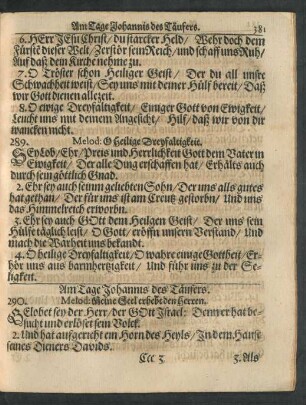 Am Tage Johannis des Täufers. 381
6. HErr JEsu Christ/ du starcker Held/ Wehr doch dem
Fürste dieser Welt/ Zerstör sein Reich/ und schaff uns Ruh/
Auf daß dein Kirche nehme zu.
7. O Tröster schon Heiliger Geist/ Der du all unsre
Schwachheit weist/ Sey uns mit deiner Hülf bereit/ Daß
wir Gott dienen allezeit.
8. O ewige Dreyfaltigkeit/ Einiger Gott von Ewigkeit/
Leucht uns mit deinem Angesicht/ Hilf/ daß wir von dir
wancken nicht.
289. Melod: O Heilige Dreyfaltigkeit.
SEy Lob/ Ehr/ Preis und Herrlichkeit Gott dem Vater in
Ewigkeit/ Der alle Ding erschaffen hat/ Erhälts auch
durch sein göttlich Gnad.
2. Ehr sey auch seinm geliebten Sohn/ Der uns alls gutes
hat gethan/ Der für uns ist am Creutz gestorbn/ Und uns
das Himmelreich erworbn.
3. Ehr sey auch GOtt dem Heilgen Geist/ Der uns sein
Hülfe täglich leist/ O Gott/ eröffn unsern Verstand/ Und
mach die Warheit uns bekandt.
4. O heilige Dreyfaltigkeit/ O wahre einige Gottheit/ Er-
hör uns aus barmhertzigkeit/ Und führ uns zu der Se-
ligkeit.
Am Tage Johannis des Täufers.
290. Melod: Meine Seel erhebt den Herren.
GElobet sey der Herr/ der GOtt Israel: Denn er hat be-
sucht und erlöset sein Volck.
2. Und hat aufgericht ein Horn des Heyls/ In dem Hause
seines Dieners Davids.
Ccc 3 3. Als